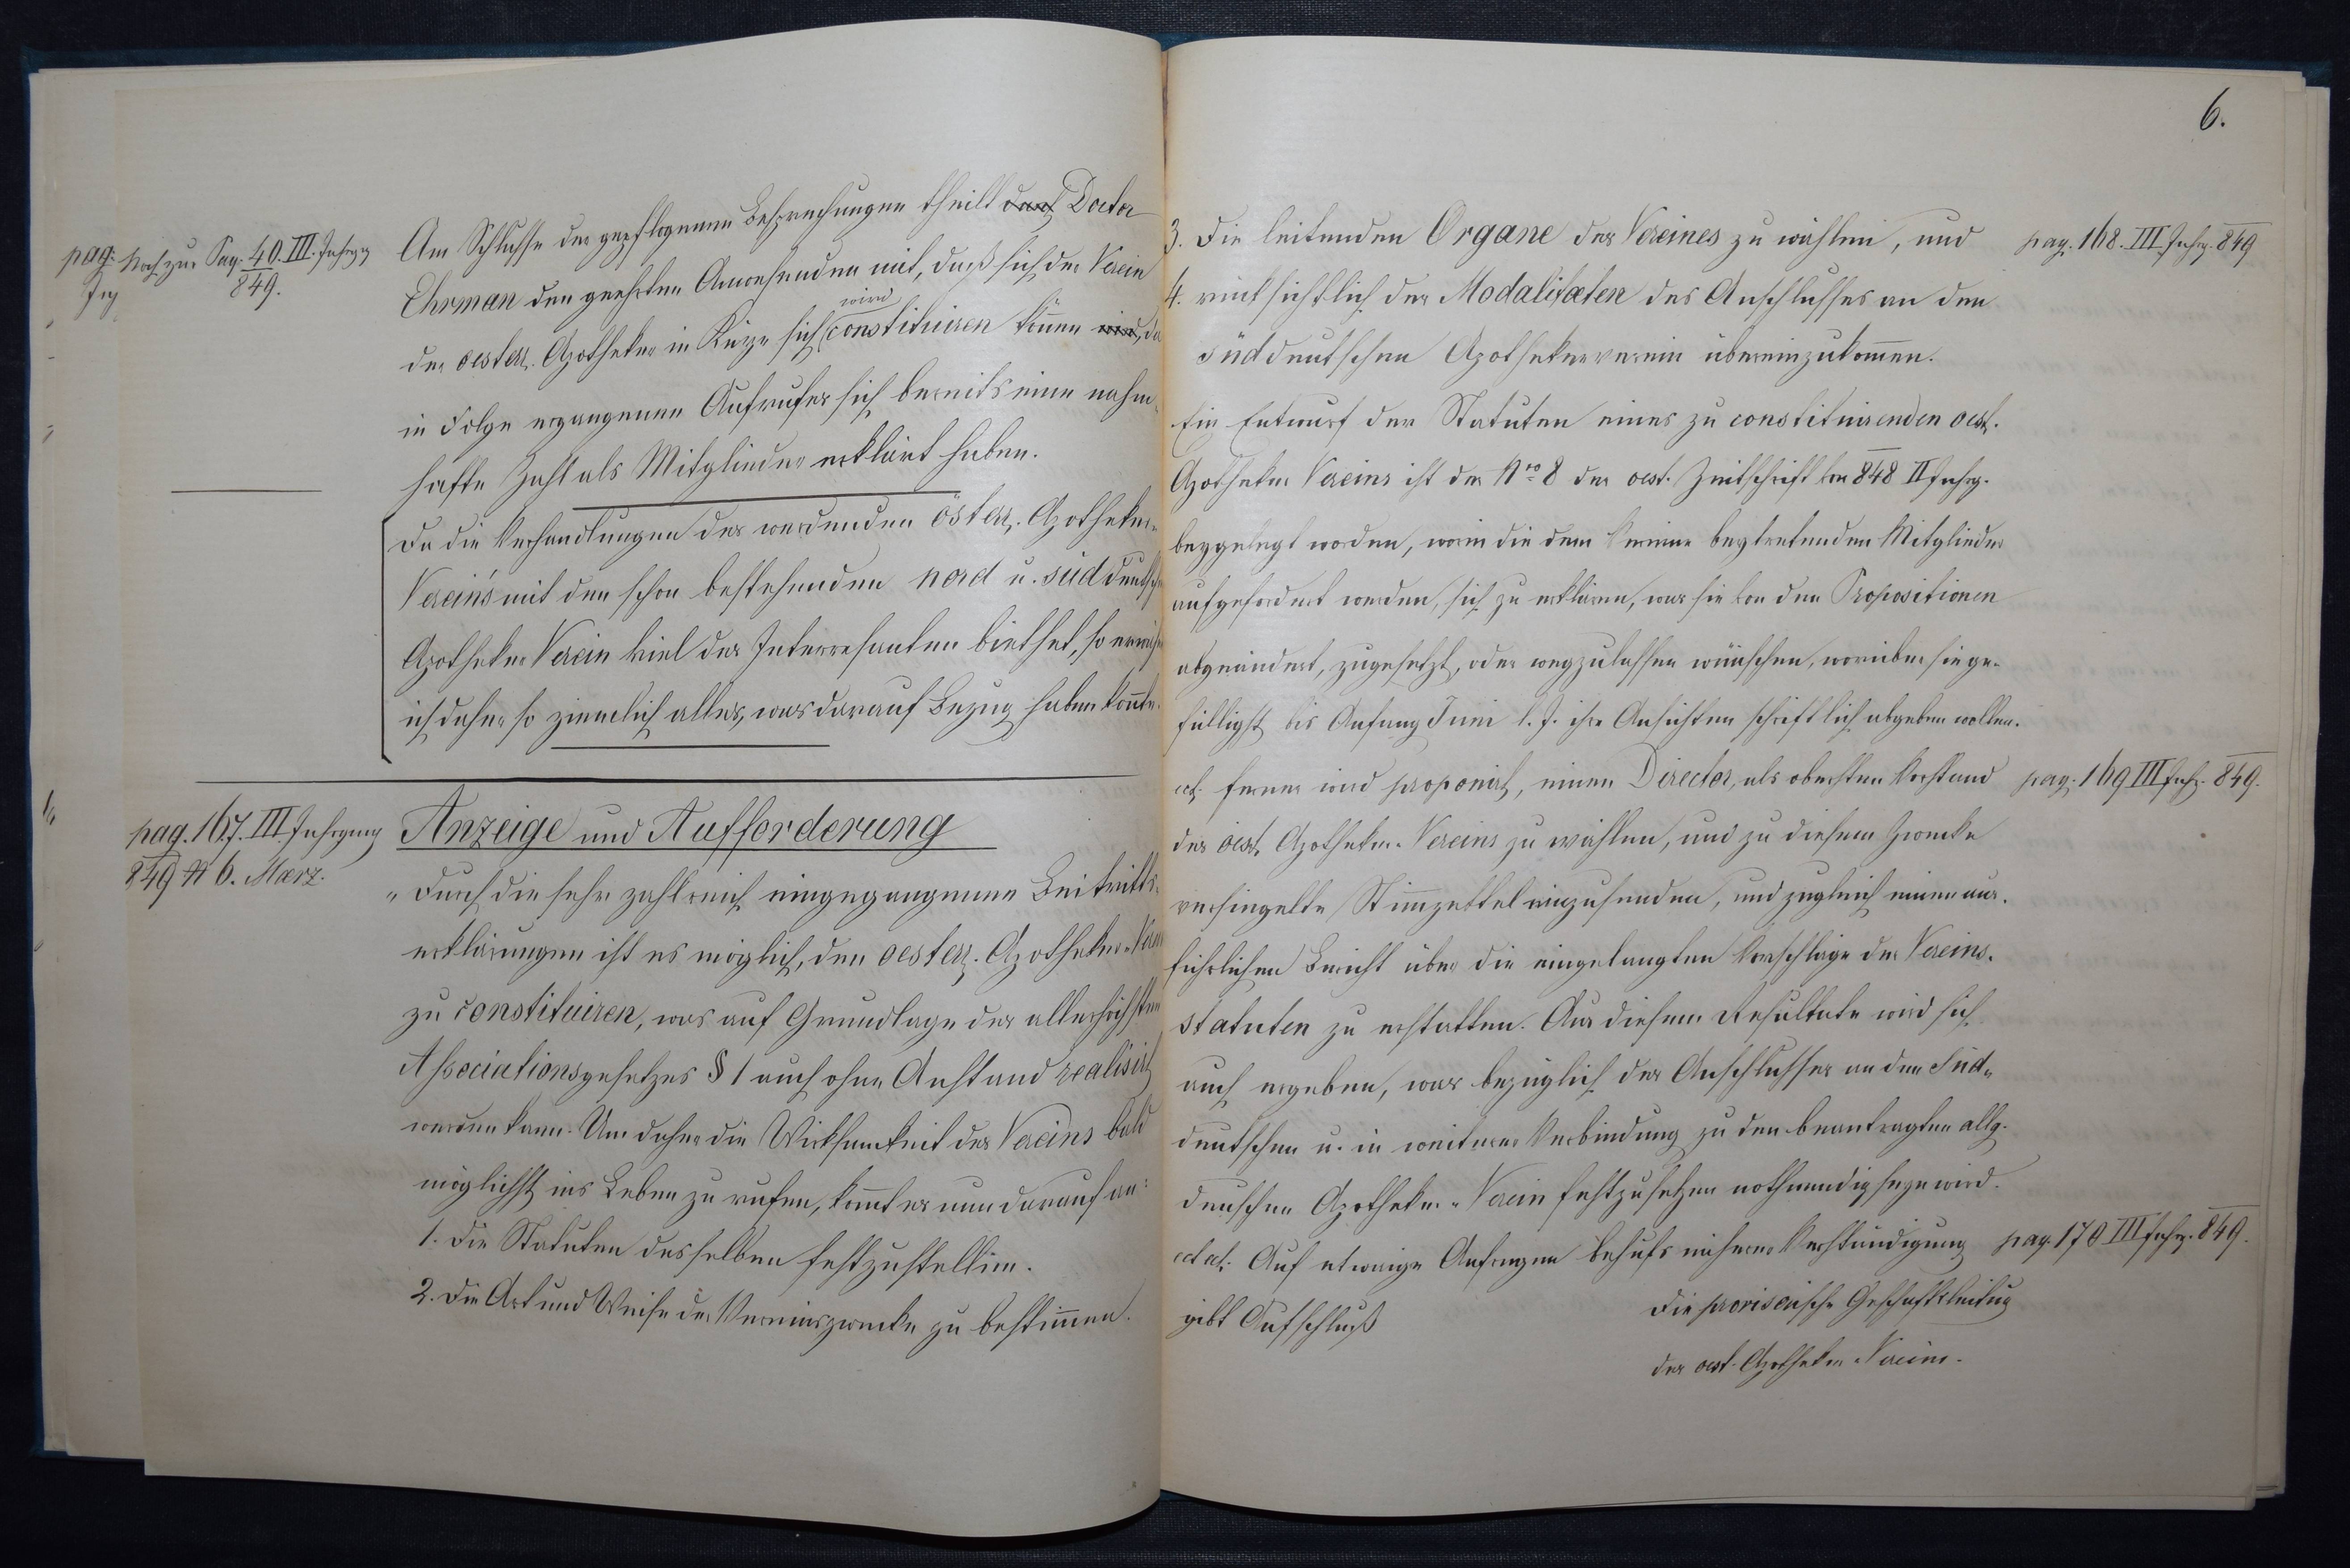 Noch zur Pag. 40. III. Jahrgg
849.
Am Schlusse der gepflogenen Besprechungen theilt Doctor
Ehrman den geehrten Anwesenden mit, daß sich der Verein
der oesterr. Apotheker in Kürze sich constituiren wird können wird, da
in Folge ergangenen Aufrufes sich bereits eine nahm-
hafte Zahl als Mitglieder erklärt haben.
Da die Verhandlungen des werdenden österr. Apotheker-
Verein's mit den schon bestehenden nord u. süd deutsche
Apotheker Verein viel des Interresanten biethet, so
ich daher so ziemlich alles, was darauf Bezug haben konnte.
pag. 167. III. Jahrgang
849 № 6. Maerz.
Anzeige und Aufforderung
„Durch die sehr zahlreich eingegangenen Beitritts-
erklärungen ist es möglich, den oesterr. Apotheker-Verein
zu constituiren, was auf Grundlage des allerhöchsten
Associationsgesetzes § 1 auch ohne Anstand realisirt
werden kann. Um daher die Wirksamkeit des Vereins bald
möglichst ins Leben zu rufen, kom̄t es nun darauf an:
1. Die Statuten desselben festzustellen.
2. Die Art und Weise der Vereinszwecke zu bestim̄en.
6.
3. Die leitenden Organe des Vereines zu wählen, und
pag. 168. III. Jahrg. 849
4. rücksichtlich der Modalitæten des Anschlusses an den
süddeutschen Apothekerverein übereinzukom̄en.
Ein Entwurf der Statuten eines zu constituirenden oest.
Apotheker Vereins ist der Nro 8 der oest. Zeitschrift von 848 II Jahrg.
beygelegt worden, worin die dem Vereine beytretenden Mitglieder
aufgefordert werden, sich zu erklären, was sie von den Propositionen
abgeändert, zugesetzt, oder wegzulassen wünschen, worüber sie ge-
fälligst bis Anfang Juni l. J. ihre Ansichten schriftlich abgeben wollen.
ect. ferner wird proponirt, einen Director, als obersten Vorstand
pag. 169 III Jahrg. 849.
des öest. Apotheker-Vereins zu wählen, und zu diesem Zwecke
versiegelte Stim̄zettel einzusenden, und zugleich einen aus-
führlichen Bericht über die eingelangten Vorschläge der Vereins-
statuten zu erstatten. Aus diesem Resultate wird sich
auch ergeben, was bezüglich des Anschlusses an den Süd-
deutschen u. in weiterer Verbindung zu den beantragten allg.
deuschen Apotheker-Verein festzusetzen nothwendig seyn wird.
ect ect. Auf etwaige Anfragen behufs näherer Verständigung
pag. 170 III Jahrg. 849.
gibt Aufschluß
Die provisorische Geschäftsleitung
des oest. Apotheker-Vereins.